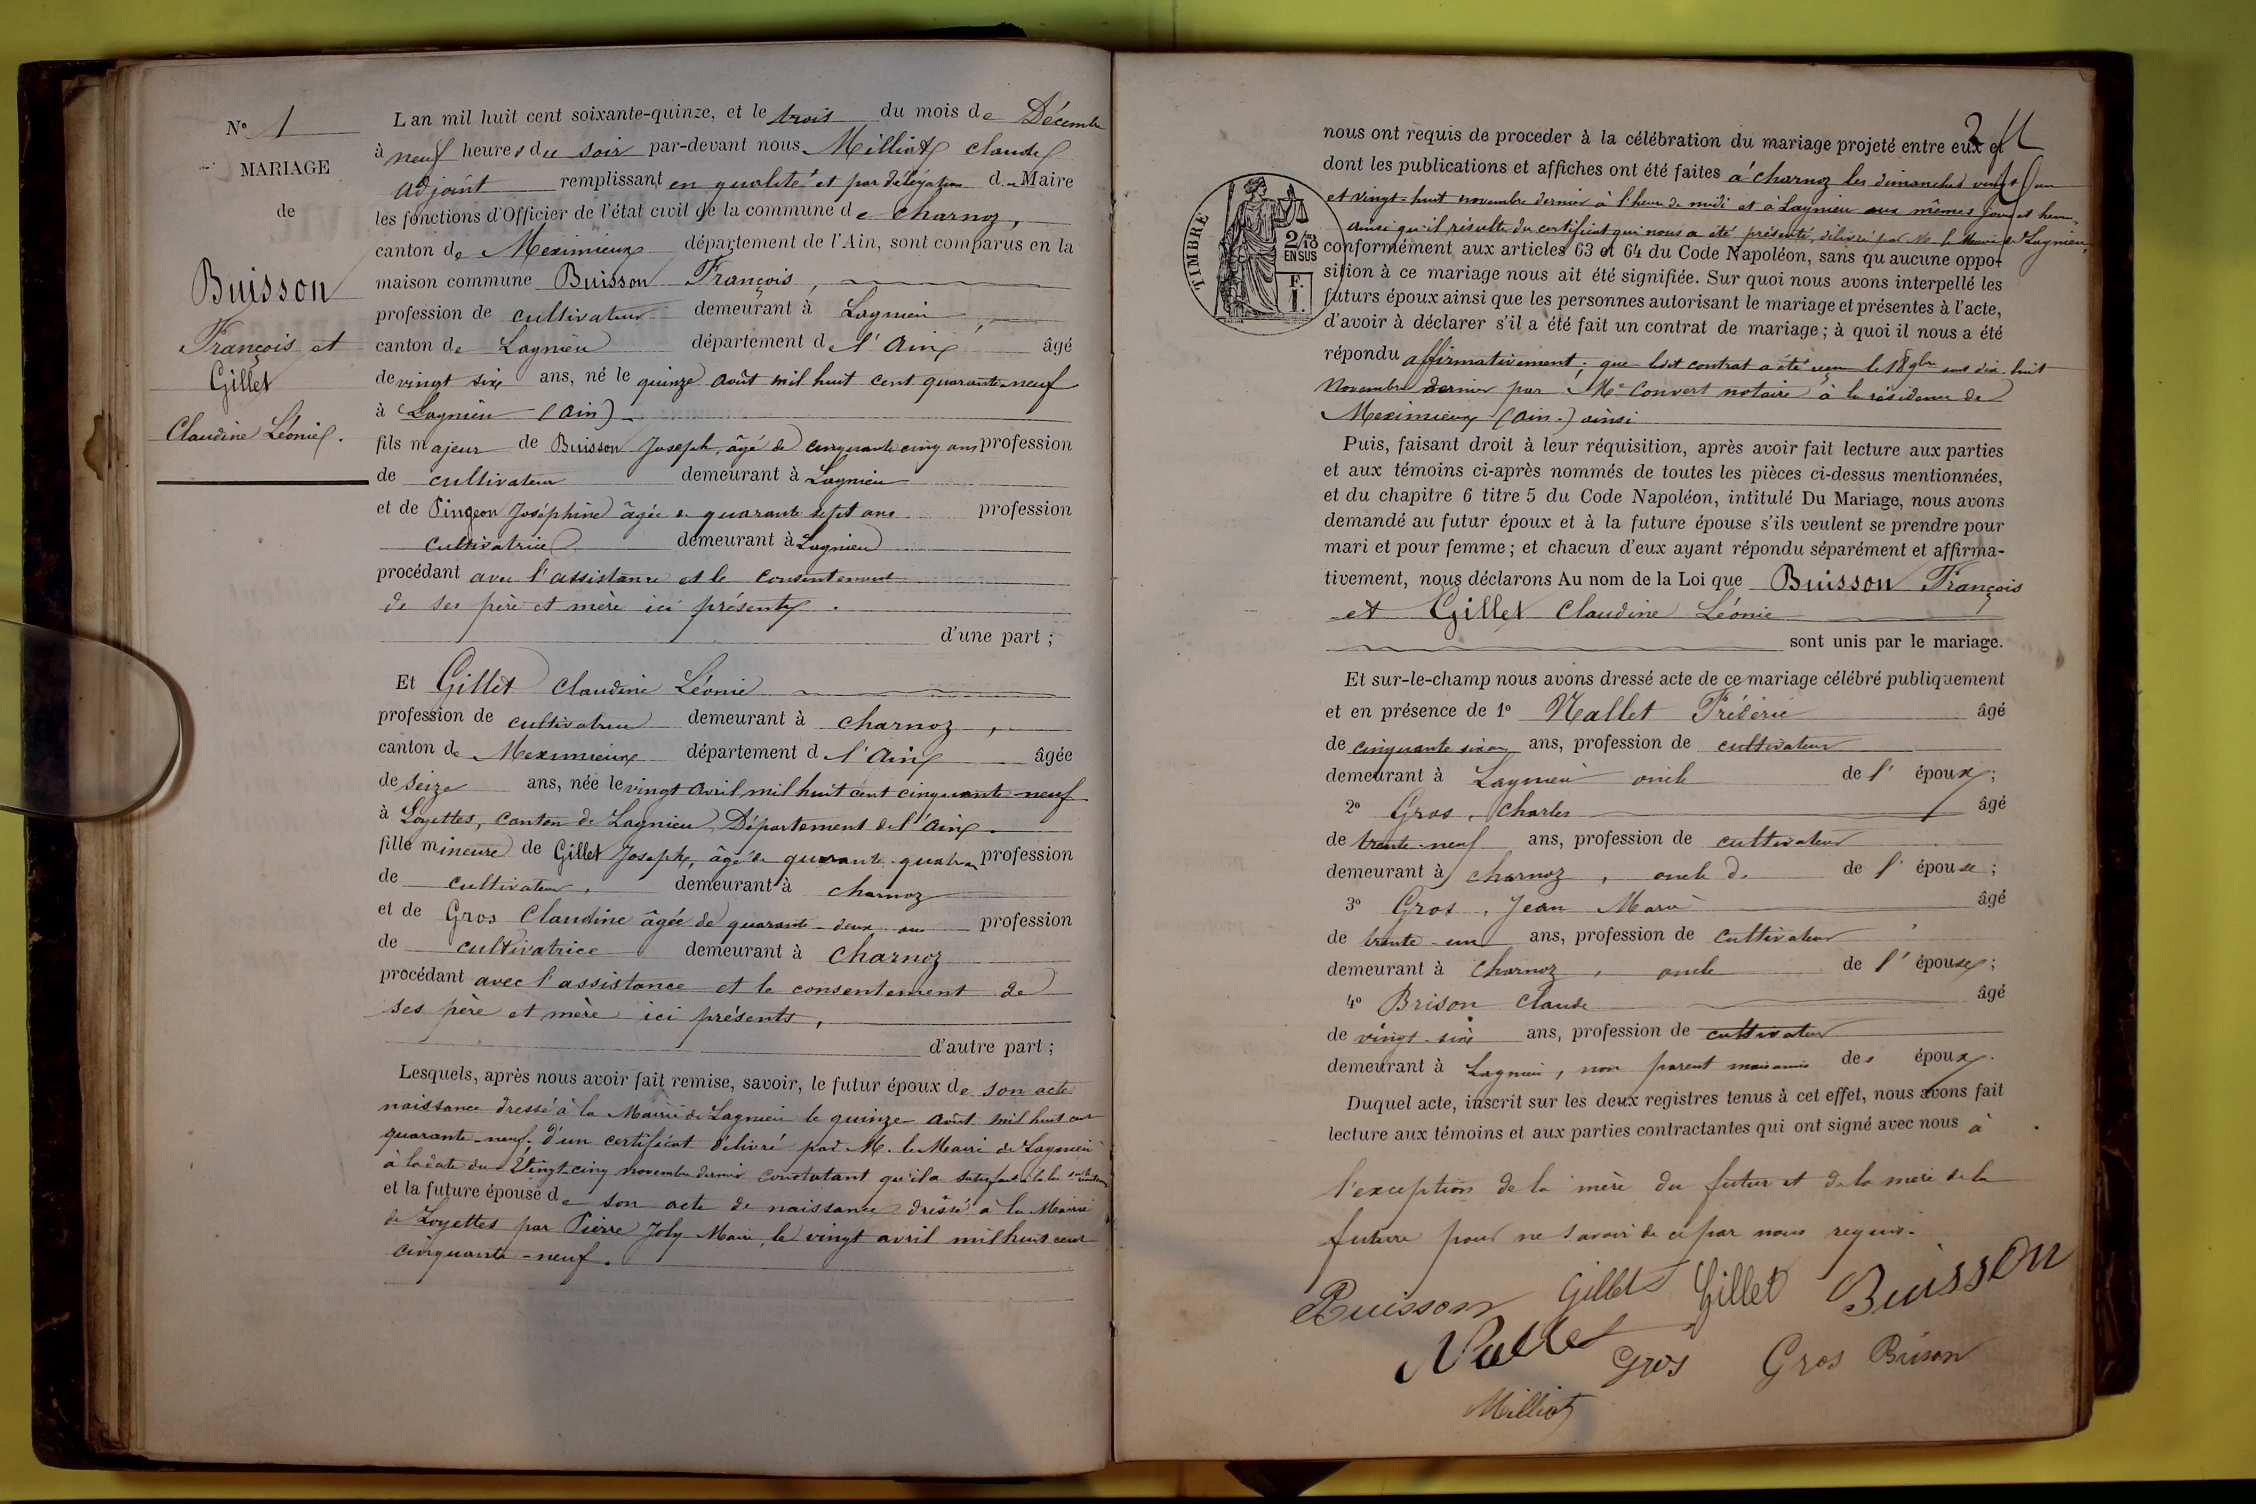 N° 1
MARIAGE
de
Buisson
François et
Gillet
Claudine Léonie.
L'an mil huit cent soixante-quinze, et le trois du mois de Décembre
à neuf heures du soir par-devant nous Milliat Claude
adjoint remplissant en qualité et par délégation du Maire
les fonctions d'Officier de l'état civil de la commune de Charnoz,
canton de Meximieux département de l'Ain, sont comparus en la
maison commune Buisson François,
profession de cultivateur demeurant à Lagnieu,
canton de Lagnieu département de l'Ain, âgé
de vingt six ans, né le quinze août mil huit cent quarante-neuf
à Lagnieu (Ain)
fils majeur de Buisson Joseph, âgé de cinquante cinq ans profession
de cultivateur demeurant à Lagnieu
et de Pingeon Joséphine âgée de quarante sept ans profession
cultivatrice demeurant à Lagnieu
procédant avec l'assistance et le consentement
de ses père et mère ici présents.
d'une part ;
Et Gillet Claudine Léonie
profession de cultivatrice demeurant à Charnoz,
canton de Meximieux département de l'Ain âgée
de seize ans, née le vingt avril mil huit cent cinquante-neuf
à Loyettes, canton de Lagnieu, Département de l'Ain.
fille mineure de Gillet Joseph, âgé de quarante-quatre ans profession
de cultivateur, demeurant à Charnoz
et de Gros Claudine âgée de quarante-deux ans profession
de cultivatrice demeurant à Charnoz
procédant avec l'assistance et le consentement de
ses père et mère ici présents,
d'autre part ;
Lesquels, après nous avoir fait remise, savoir, le futur époux de son acte
naissance dressé à la Mairie de Lagnieu le quinze août mil huit cent
quarante-neuf. d'un certificat délivré par M. le Maire de Lagnieu
à la date du vingt-cinq novembre dernier constatant qu'il a satisfait à la loi
et la future épouse de son acte de naissance dressé à la Mairie
de Loyettes par Pierre Joly Maire, le vingt avril mil huit cent
cinquante-neuf.
2
TIMBRE
2/10 EN SUS
F. 1.
nous ont requis de proceder à la célébration du mariage projeté entre eux et
dont les publications et affiches ont été faites à Charnoz les dimanches vingt un
et vingt-huit novembre dernier à l'heure de midi et à Lagnieu aux mêmes jours et heure,
ainsi qu'il résulte du certificat qui nous a été présenté, délivré par M. le Maire de Lagnieu,
conformément aux articles 63 et 64 du Code Napoléon, sans qu'aucune oppo-
sition à ce mariage nous ait été signifiée. Sur quoi nous avons interpellé les
futurs époux ainsi que les personnes autorisant le mariage et présentes à l'acte,
d'avoir à déclarer s'il a été fait un contrat de mariage ; à quoi il nous a été
répondu affirmativement ; que ledit contrat a été reçu le dix-huit
Novembre dernier par Me Convert notaire à la résidence de
Meximieux (Ain.) ainsi
Puis, faisant droit à leur réquisition, après avoir fait lecture aux parties
et aux témoins ci-après nommés de toutes les pièces ci-dessus mentionnées,
et du chapitre 6 titre 5 du Code Napoléon, intitulé Du Mariage, nous avons
demandé au futur époux et à la future épouse s'ils veulent se prendre pour
mari et pour femme ; et chacun d'eux ayant répondu séparément et affirma-
tivement, nous déclarons Au nom de la Loi que Buisson François
et Gillet Claudine Léonie
sont unis par le mariage.
Et sur-le-champ nous avons dressé acte de ce mariage célébré publiquement
et en présence de 1° Nallet Fréderic âgé
de cinquante six ans, profession de cultivateur
demeurant à Lagnieu oncle de l'époux ;
2° Gros, Charles âgé
de trente-neuf ans, profession de cultivateur
demeurant à Charnoz, oncle de de l'épouse ;
3° Gros, Jean Marie âgé
de trente-un ans, profession de cultivateur
demeurant à Charnoz, oncle de l'épouse ;
4° Brison Claude âgé
de vingt-six ans, profession de cultivateur
demeurant à Lagnieu, non parent mais amis des époux.
Duquel acte, inscrit sur les deux registres tenus à cet effet, nous avons fait
lecture aux témoins et aux parties contractantes qui ont signé avec nous à
l'exception de la mère du futur et de la mère de la
future pour ne savoir de ce par nous requis.
Buisson Gillet Gillet Buisson
Nallet Gros Gros Brison
Milliat